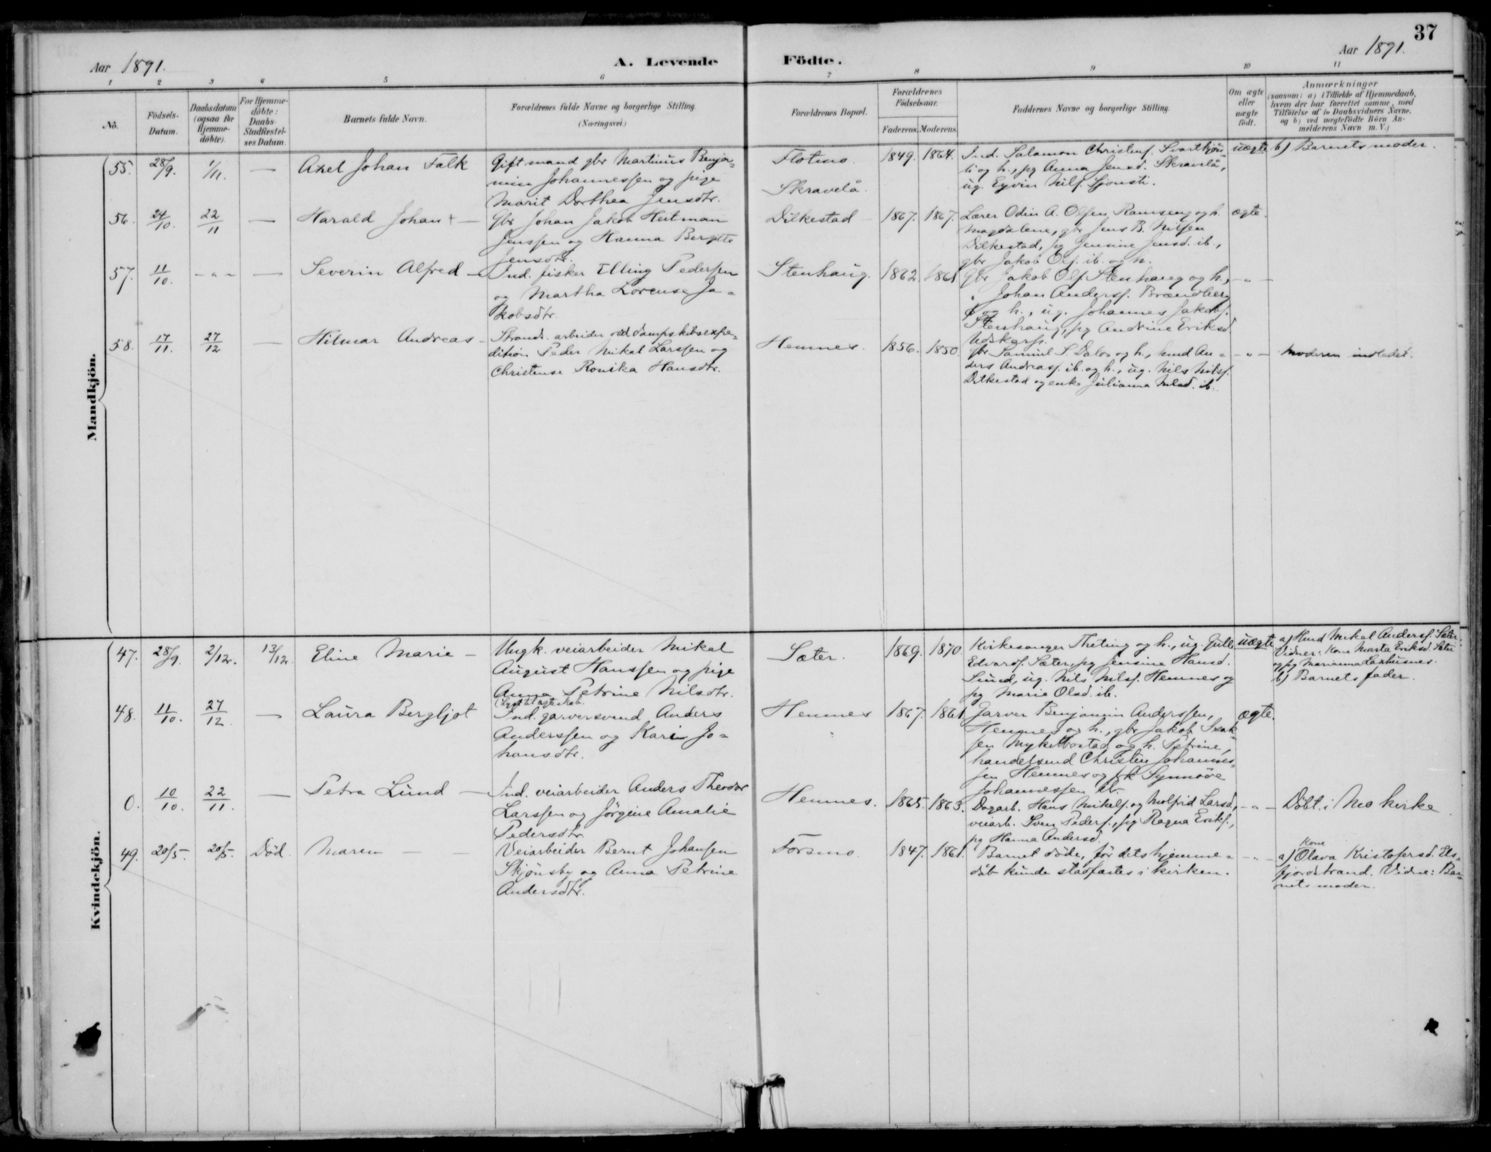 37
Aar 1891.
A. Levende Födte.
Aar 1891.
1 2 3 4 5 6 7 8 9 10 11
No.
Födsels-Datum.
Daabsdatum (ogsaa for Hjemmedöbte).
For Hjemmedöbte: Daabs-Stadfestelses Datum.
Barnets fulde Navn.
Forældrenes fulde Navne og borgerlige Stilling.
(Næringsvei.)
Forældrenes Bopæl.
Forældrenes Födselsaar.
Faderens. Moderens.
Faddernes Navne og borgerlig Stilling.
Om ægte eller uægte födt.
Anmærkninger
Mandkjön.
55. 28/9. 1/11. — Axel Johan Falk
Gift mand gbr Martinus Benja-
min Johannessen og pige
Marit Dorthea Jensdtr.
Flotmo
Skravelå.
1849. 1864.
Ind. Salamon Christens. Svart
og h., pg Anna Jensd. Skravelå,
ug. Eyvin Nils.
uægte
b) Barnets moder.
56. 24/10. 22/11 — Harald Johan —
Gbr Johan Jakob Heitman
Jenssen og Hanna Bergitte
Jensdtr.
Dilkestad
1867. 1867.
Lærer Odin A. Olsen Ramseng og h.
Magdalene, gbr Jens B. Nilsen
Dilkestad, pg Jensine Jensd. ib.,
gbr Jakob Ols. ib. og h.
ægte.
57. 11/10. -"- — Severin Alfred —
Ind. fisker Elling Pedersen
og Martha Lorense Ja-
kobsdtr.
Stenhaug.
1862. 1861
Gbr Jakob Ols. Stenhaug og h.,
" Johan Anders. Brændberg
og h., ug. Johannes Jakobs.
Stenhaug, pg Andrine Eriksd.
-"-
58. 17/11. 27/12 Hilmar Andreas —
Strands. arbeider ved dampskibsexpe-
dition Peder Mikal Larssen og
Christense Ronika Hansdtr.
Hemnes.
1856. 1850.
Gbr Samuel S. Dalos og h., Ind An-
ders Andreas. ib. og h., ug. Nils Nils.
Dilkestad og enke Julianna Nilsd. ib.
-"-
Moderen indledet.
Kvindekjön.
47. 28/9. 2/12. 13/12. Eline Marie —
Ungk. veiarbeider Mikal
August Hanssen og pige
Anna Petrine Nilsdtr.
Sæter.
1869. 1870.
Kirkesanger Theting og h., ug.
Edvards. Sæter, pg Jensine Hansd.
Lund, ug. Nils Nils. Hemnes og
pg Marie Olsd. ib.
uægte
a) Ind Mikal Anders. Sæter.
Vidner: Kone Marta Eriksd. Sæter
og pg Marianna
b) Barnets fader.
48. 11/10. 27/12. — Laura Bergljot
Ind. garversvend Anders
Anderssen og Kari Jo-
hansdtr.
Hemnes
1867. 1861.
Garver Benjamin Anderssen,
Hemnes og h., gbr Jakob Isak-
sen Myklebostad og h. Petrine,
handelsmd Christian Johannes-
sen Hemnes og frk Synnöve
Johannessen ib.
ægte.
0. 10/10. 22/11. — Petra Lund —
Ind. veiarbeider Anders Theodor
Larssen og Jørgine Amalie
Pedersdtr.
Hemnes.
1865. 1863.
Dagarb. Hans Mikels. og Molfrid Larsd.,
veiarb. Sven Peders., pg Ragna Eriks.,
pg Hanna Andersd.
-"-
Döbt i Mo kirke
49. 20/5. 20/5. Död. Maren — —
Veiarbeider Bernt Johansen
Skjönsby og Anna Petrine
Andersdtr.
Forsmo.
1847. 1861.
Barnet döde, för dets hjemme-
dåb kunde stadfæstes i kirken.
-"-
a) Kone Olava Kristofersd. Els-
fjordstrand. Vidne: Bar-
nets moder.